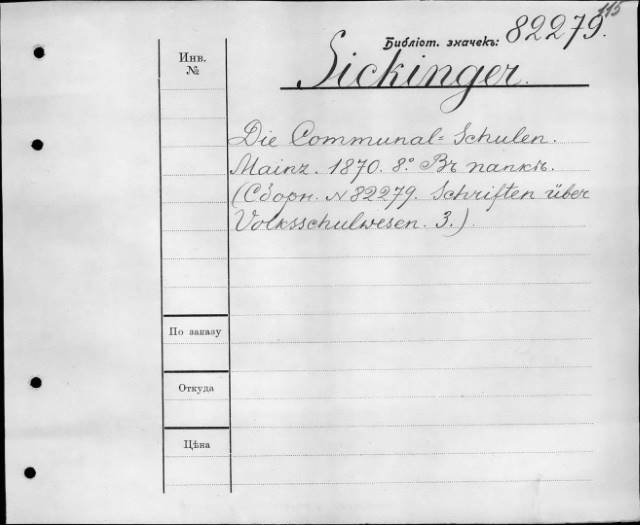 115
Библіот. значекъ: 82279.
Инв. №
Sickinger.
Die Communal-Schulen.
Mainz. 1870. 8°. Въ папкѣ.
(Сборн. № 82279. Schriften über
Volksschulwesen. 3.)
По заказу
Откуда
Цѣна